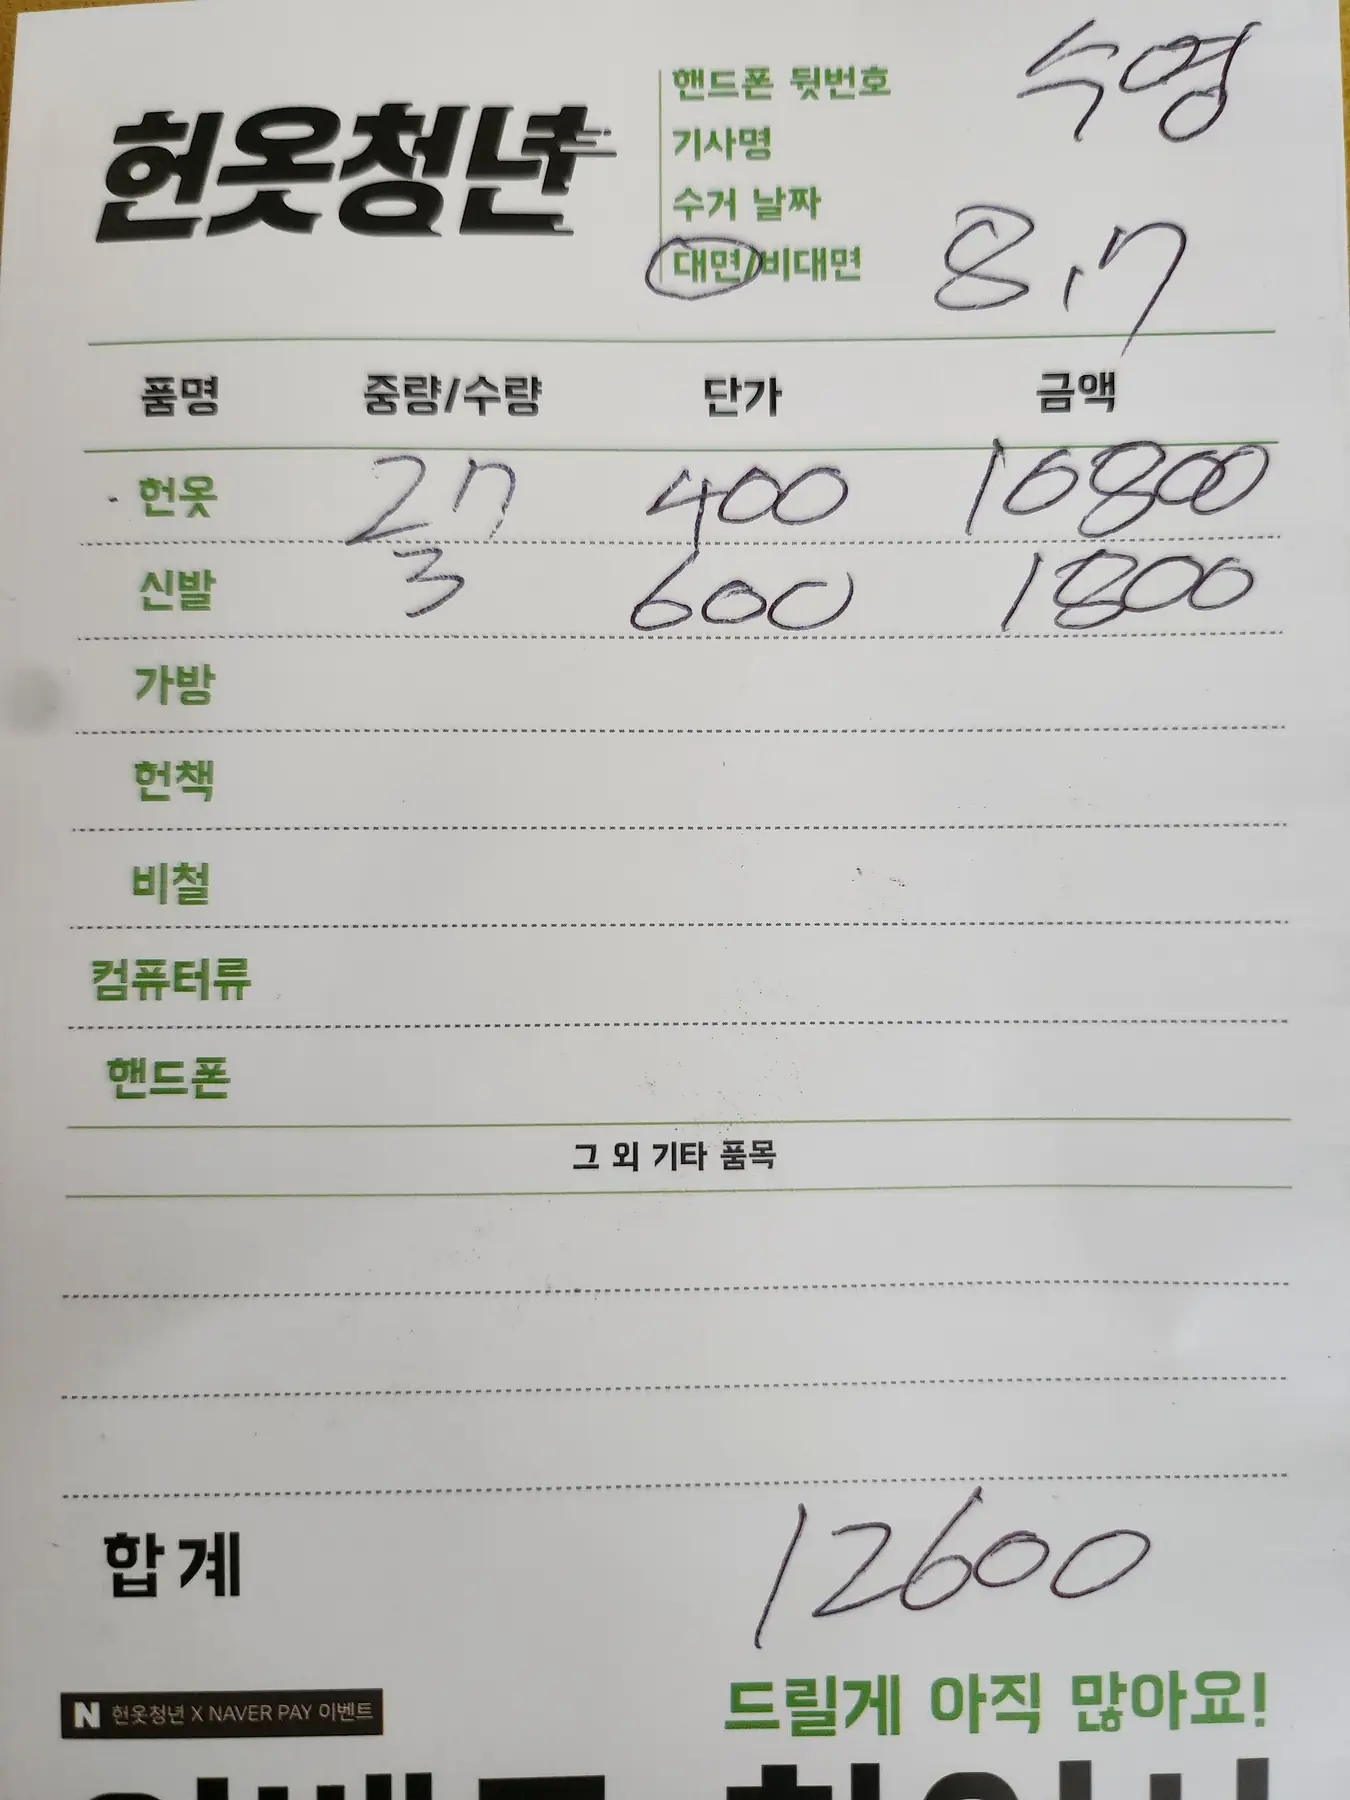 헌옷청년
핸드폰 뒷번호 수영
기사명
수거 날짜
대면/비대면 8.7
품명 중량/수량 단가 금액
헌옷 27 400 10800
신발 3 600 1800
가방
헌책
비철
컴퓨터류
핸드폰
그 외 기타 품목
합계 12600
드릴게 아직 많아요!
N 헌옷청년 X NAVER PAY 이벤트